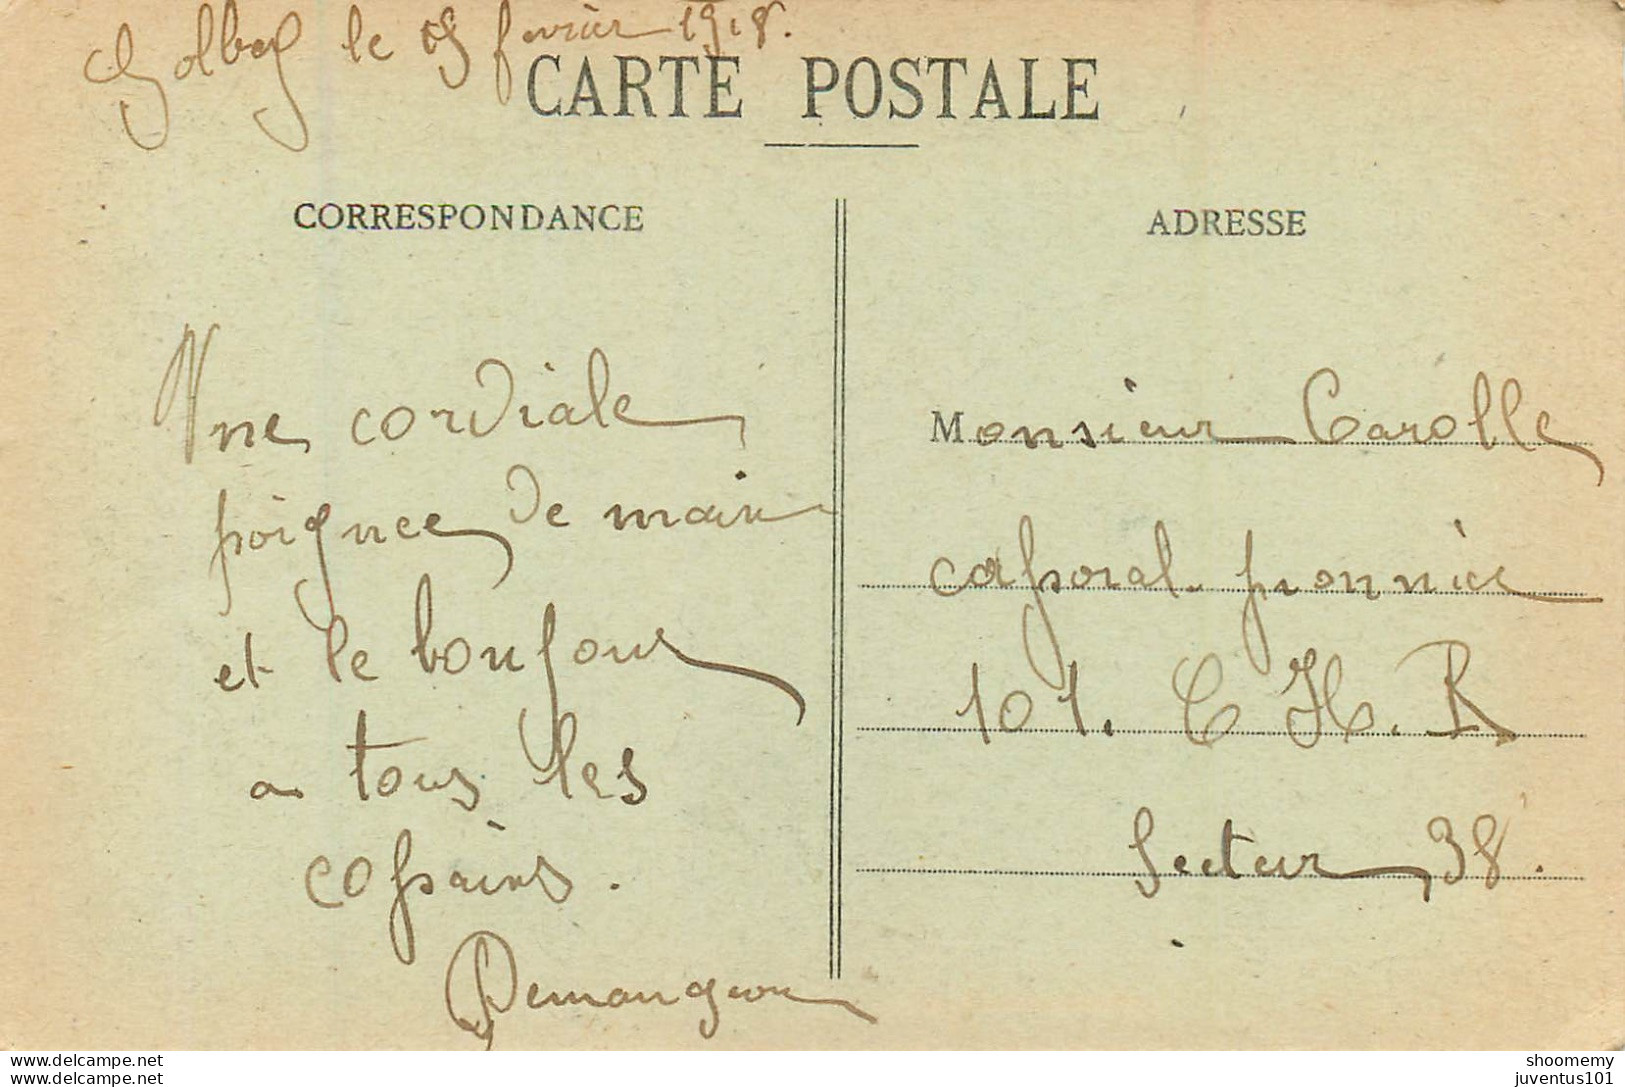 Golbey le 15 février 1918.
CARTE POSTALE
CORRESPONDANCE
Une cordiale
poignee de main
et le bonjour
a tous les
copains.
Demangeon
ADRESSE
Monsieur Carolle
caporal. pionnier
101. C. H. R
Secteur 38.
www.delcampe.net
www.delcampe.net
shoomemy
juventus101